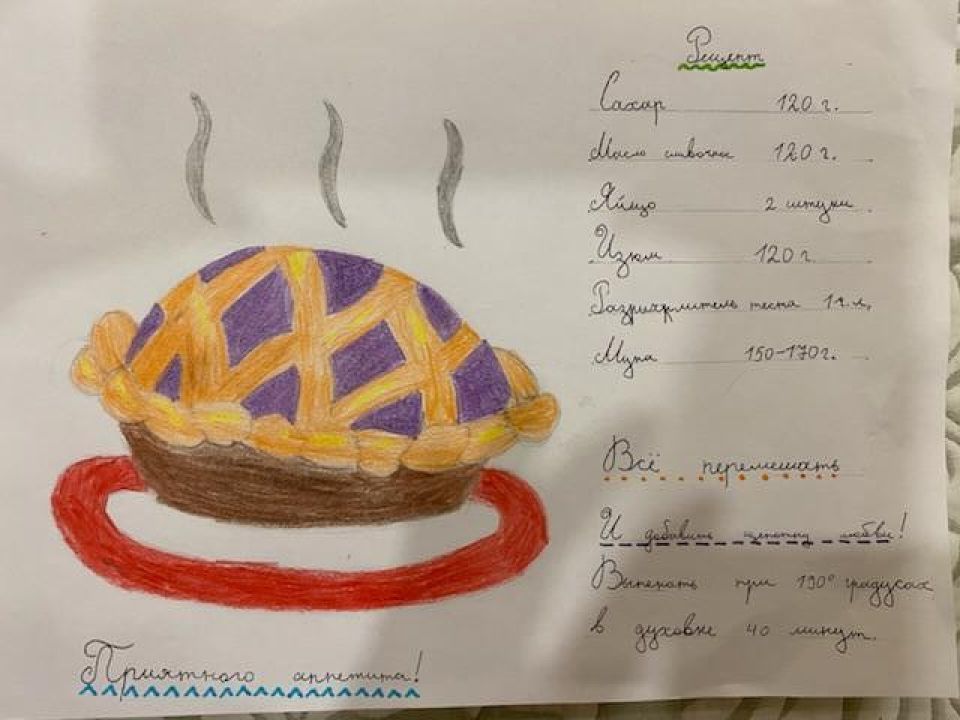 Рецепт
Сахар 120 г.
Масло сливочное 120 г.
Яйцо 2 штуки
Изюм 120 г.
Разрыхлитель теста 1 ч.л.
Мука 150-170г.
Всё перемешать
И добавить щепотку любви!
Выпекать при 190° градусах
в духовке 40 минут.
Приятного аппетита!